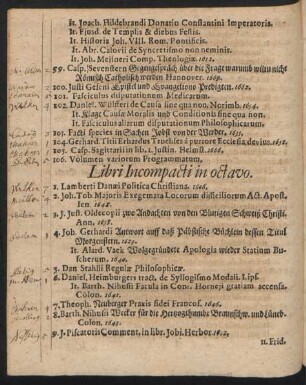 It. Joach. Hildebrandi Donatio Constantini Imperatoris.
It. Ejusd. de Templis & diebus Festis.
It. Historia Joh. VIII. Rom. Pontificis.
It. Abr. Calovii de Syncretismo non neminis.
It. Joh. Meisneri Comp. Theologiæ. 1612.
59. Casp. Sevenstern Gegengespräch über die Frage warumb wiltu nicht
Römisch Catholisch werden. Hannover. 1669.
200. Justi Geseni Epistel und Evangelions Predigten. 1661.
201. Fasciculus disputationum Medicarum.
202. Daniel. Wülfferi de Causa sine qua non. Norimb. 1654.
It. Ejusd. Causæ Moralis und Conditionis sine qua non.
It. Fasciculus aliarum disputationum Philosophicarum.
203. Facti species in Sachen Jobst von der Werder. 1631.
204. Gerhard. Titi Erhardus Truchetes à puriore Ecclesia devius. 1612.
205. Casp. Sagittarii in lib. 1. Justin. Helmst. 1666.
206. Volumen variorum Programmatum.
Libri Incompacti in octavo.
1. Lamberti Danæi Politica Christiana. 1596.
2. Joh. Tob. Majoris Exegemata Locorum difficiliorum Act. Apost.
Jen. 1648.
3. J. Just. Oldecopii zwo Andachten von den Blutigen Schweiß Christi.
Ann. 1658.
4. Joh. Gerhardi Antwort auff daß Päbstische Büchlein dessen Titul
Morgenstern. 1625.
It. Alard. Vaek Wolgegründete Apologia wieder Statium Buscherum. 1640.
5. Dan Stahlii Regulæ Philosophicæ.
6. Daniel. Heimburgers tract. de Syllogismo Modali. Lips.
It. Barth. Nihusii Fatula in Conr. Horneji gratiam accensa.
Colon. 1641.
7. Theoph. Neuberger Praxis fidei Francof. 1646.
8. Barth. Nihusii Wecker für die Hertzogthumbs Braunschw. und Lüneb.
Colon. 1641.
9. J. Piscatoris Comment, in libr. Jobi. Herbor. 1612,
11. Frid.